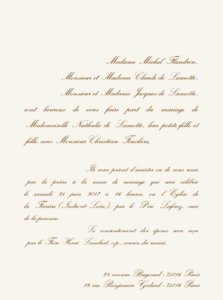 Madame Michel Flandrin,
Monsieur et Madame Claude de Lamotte,
Monsieur et Madame Jacques de Lamotte,
sont heureux de vous faire part du mariage de
Mademoiselle Nathalie de Lamotte, leur petite-fille et
fille, avec Monsieur Christian
Ils vous prient d'assister ou de vous unir
par la prière à la messe de mariage qui sera célébrée
le samedi 24 juin 2017 à 16 heures, en l'Eglise de
la Ferrière (Indre-et-Loire), par le Père
de la paroisse.
Le consentement des époux sera reçu
par le Père Hervé o.p., cousin du marié.
75116 Paris
19 rue Benjamin Godard - 75116 Paris